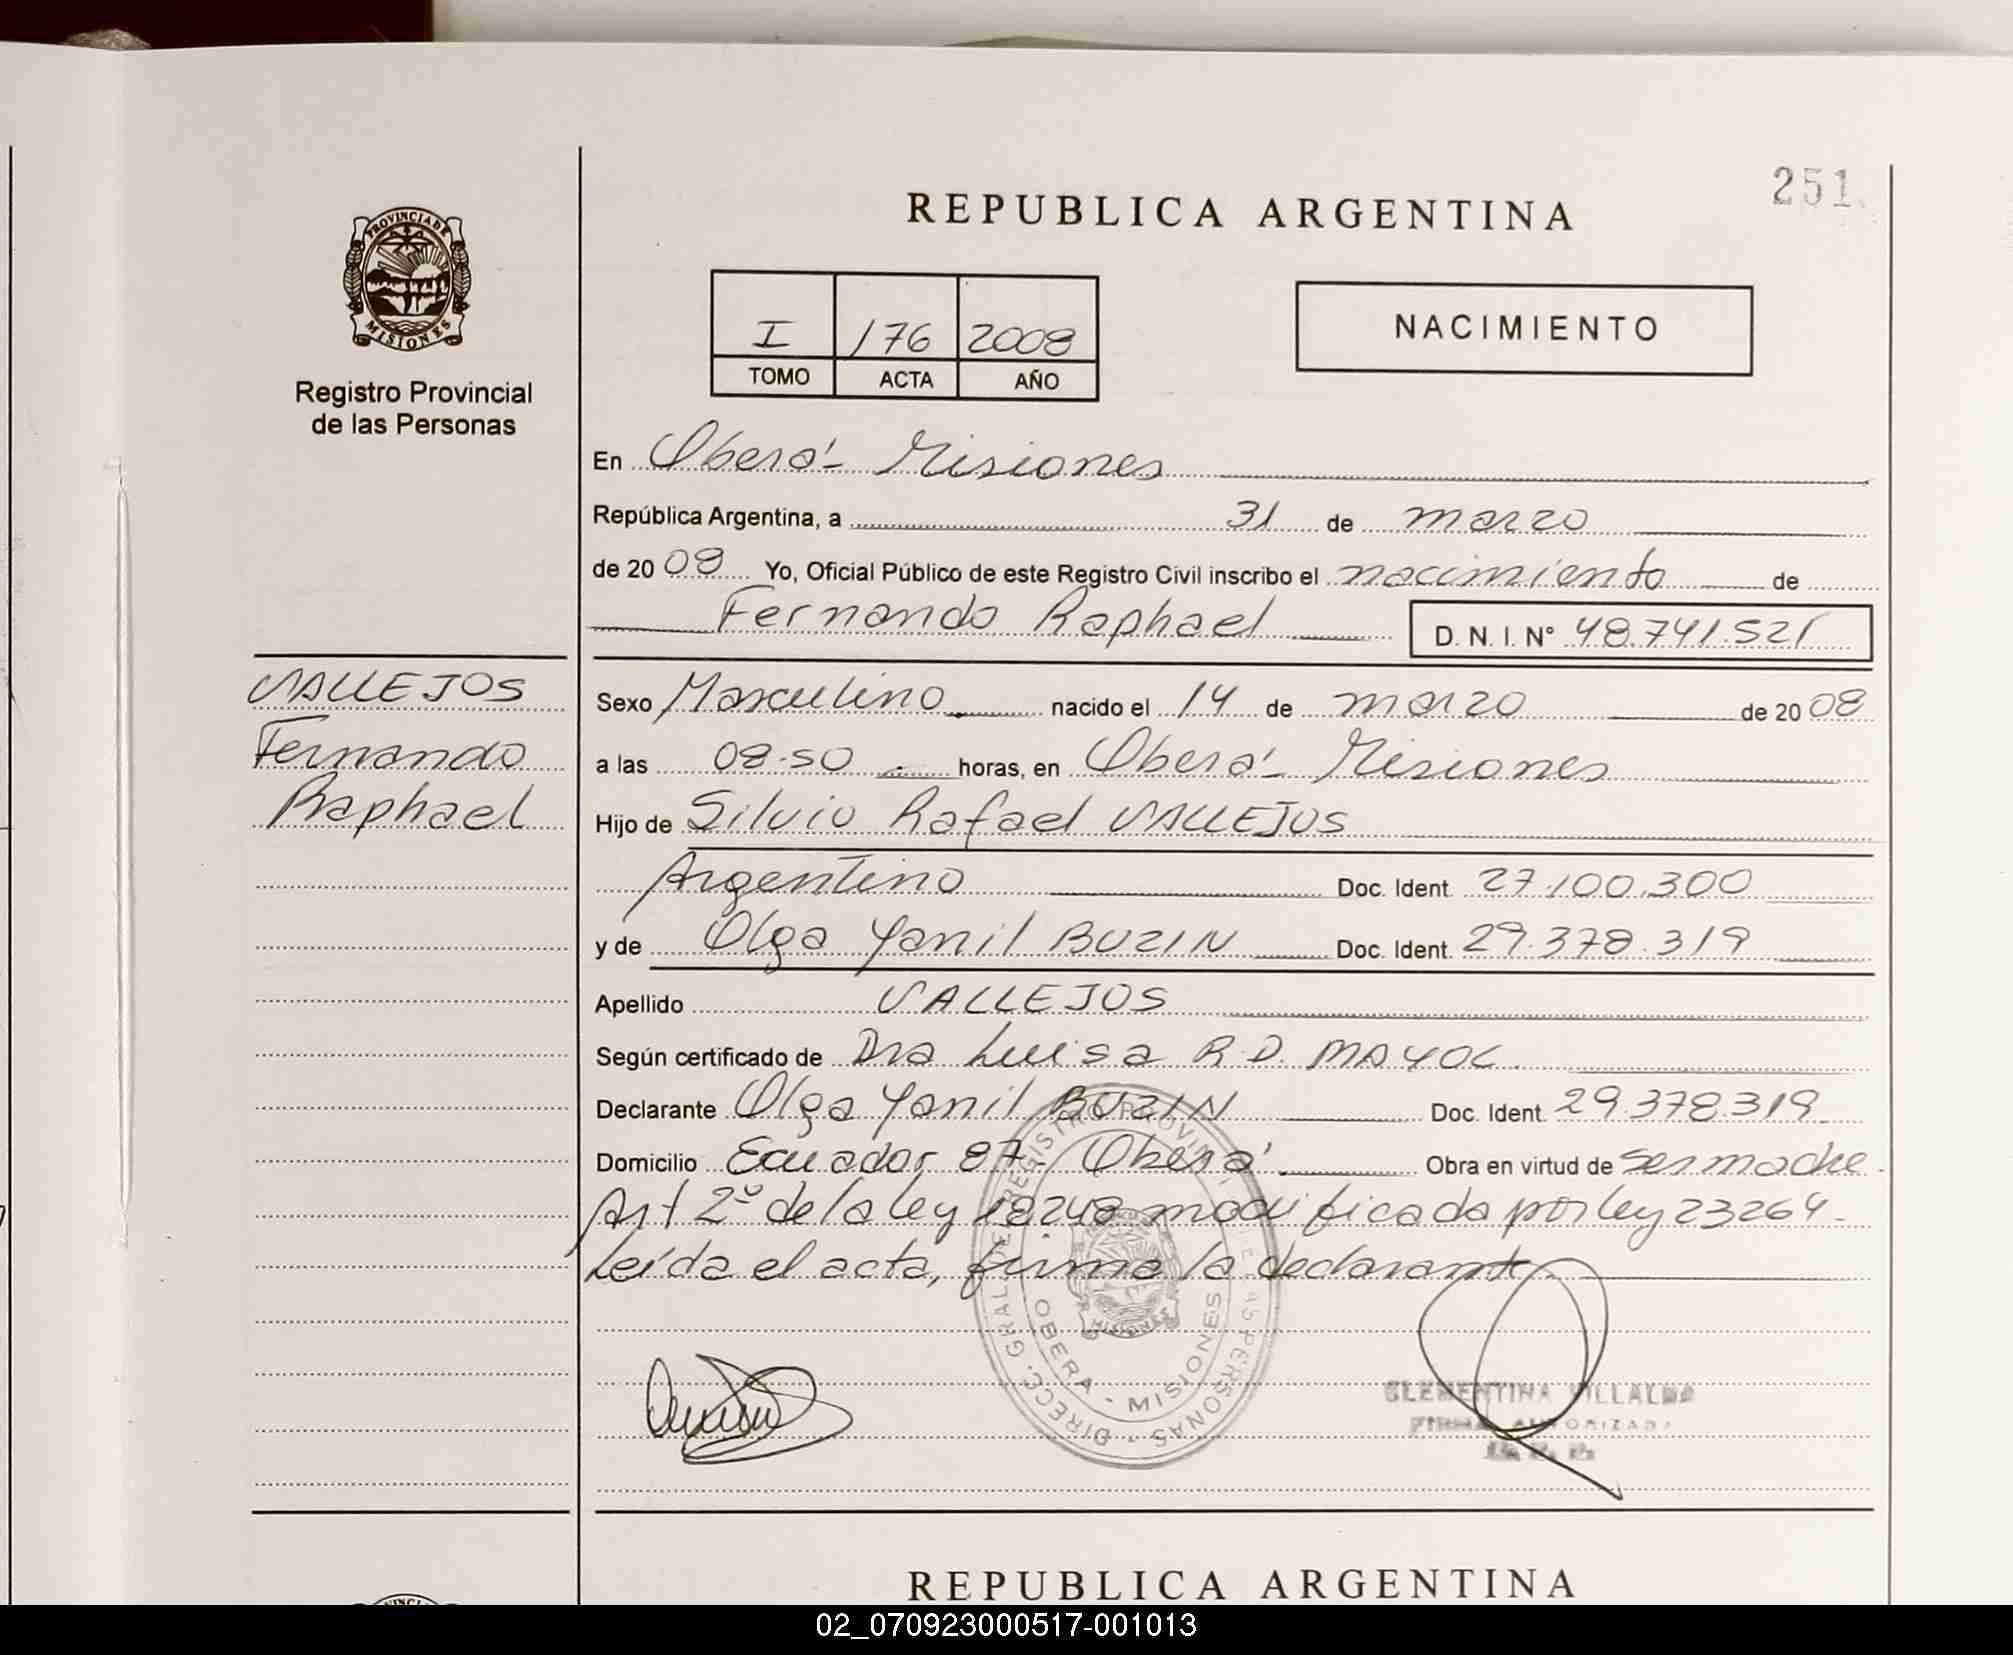 251
REPUBLICA ARGENTINA
PROVINCIA DE
MISIONES
Registro Provincial
de las Personas
I 176 2008
TOMO ACTA AÑO
NACIMIENTO
En Oberá - Misiones
República Argentina, a 31 de marzo
de 2008 Yo, Oficial Público de este Registro Civil inscribo el nacimiento de
Fernando Raphael D. N. I. N° 48.741.521
VALLEJOS
Fernando
Raphael
Sexo Masculino nacido el 14 de marzo de 2008
a las 08.50 horas, en Oberá - Misiones
Hijo de Silvio Rafael VALLEJOS
Argentino Doc. Ident. 27.100.300
y de Olga Yanil BUZIN Doc. Ident. 29.378.319
Apellido VALLEJOS
Según certificado de Dra Luisa R.D. MAYOL.
Declarante Olga Yanil BUZIN Doc. Ident. 29.378.319
Domicilio Ecuador 87 - Oberá Obra en virtud de ser madre.
Art 2º de la ley 18248 modificada por ley 23264 -
Leída el acta, firma la declarante.
DIRECC. GRAL. DE REGISTRO PROVINCIAL DE LAS PERSONAS
OBERA - MISIONES
MISIONES
CLEMENTINA VILLALBA
FIRMA AUTORIZADA
REPUBLICA ARGENTINA
02_070923000517-001013